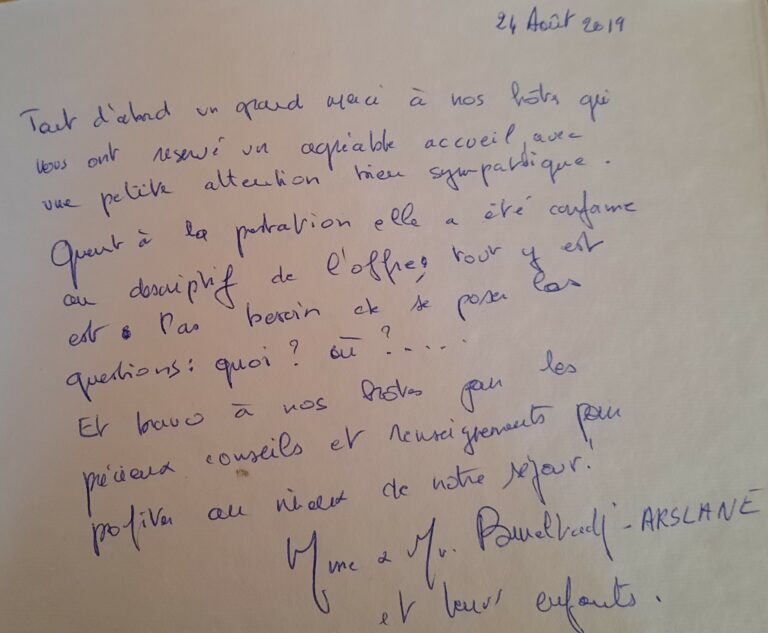 24 Août 2019
Tout d'abord un grand merci à nos hôtes qui
nous ont reservé un agréable accueil, avec
une petite attention bien sympathique.
Quant à la prestation elle a été conforme
au descriptif de l'offre, tout y est
est. Pas besoin de se poser las
questions: quoi ? où ?.....
Et bravo à nos hôtes pour les
précieux conseils et renseignements pour
profiter au mieux de notre séjour!
Mme & Mr. - ARSLANE
et leurs enfants.